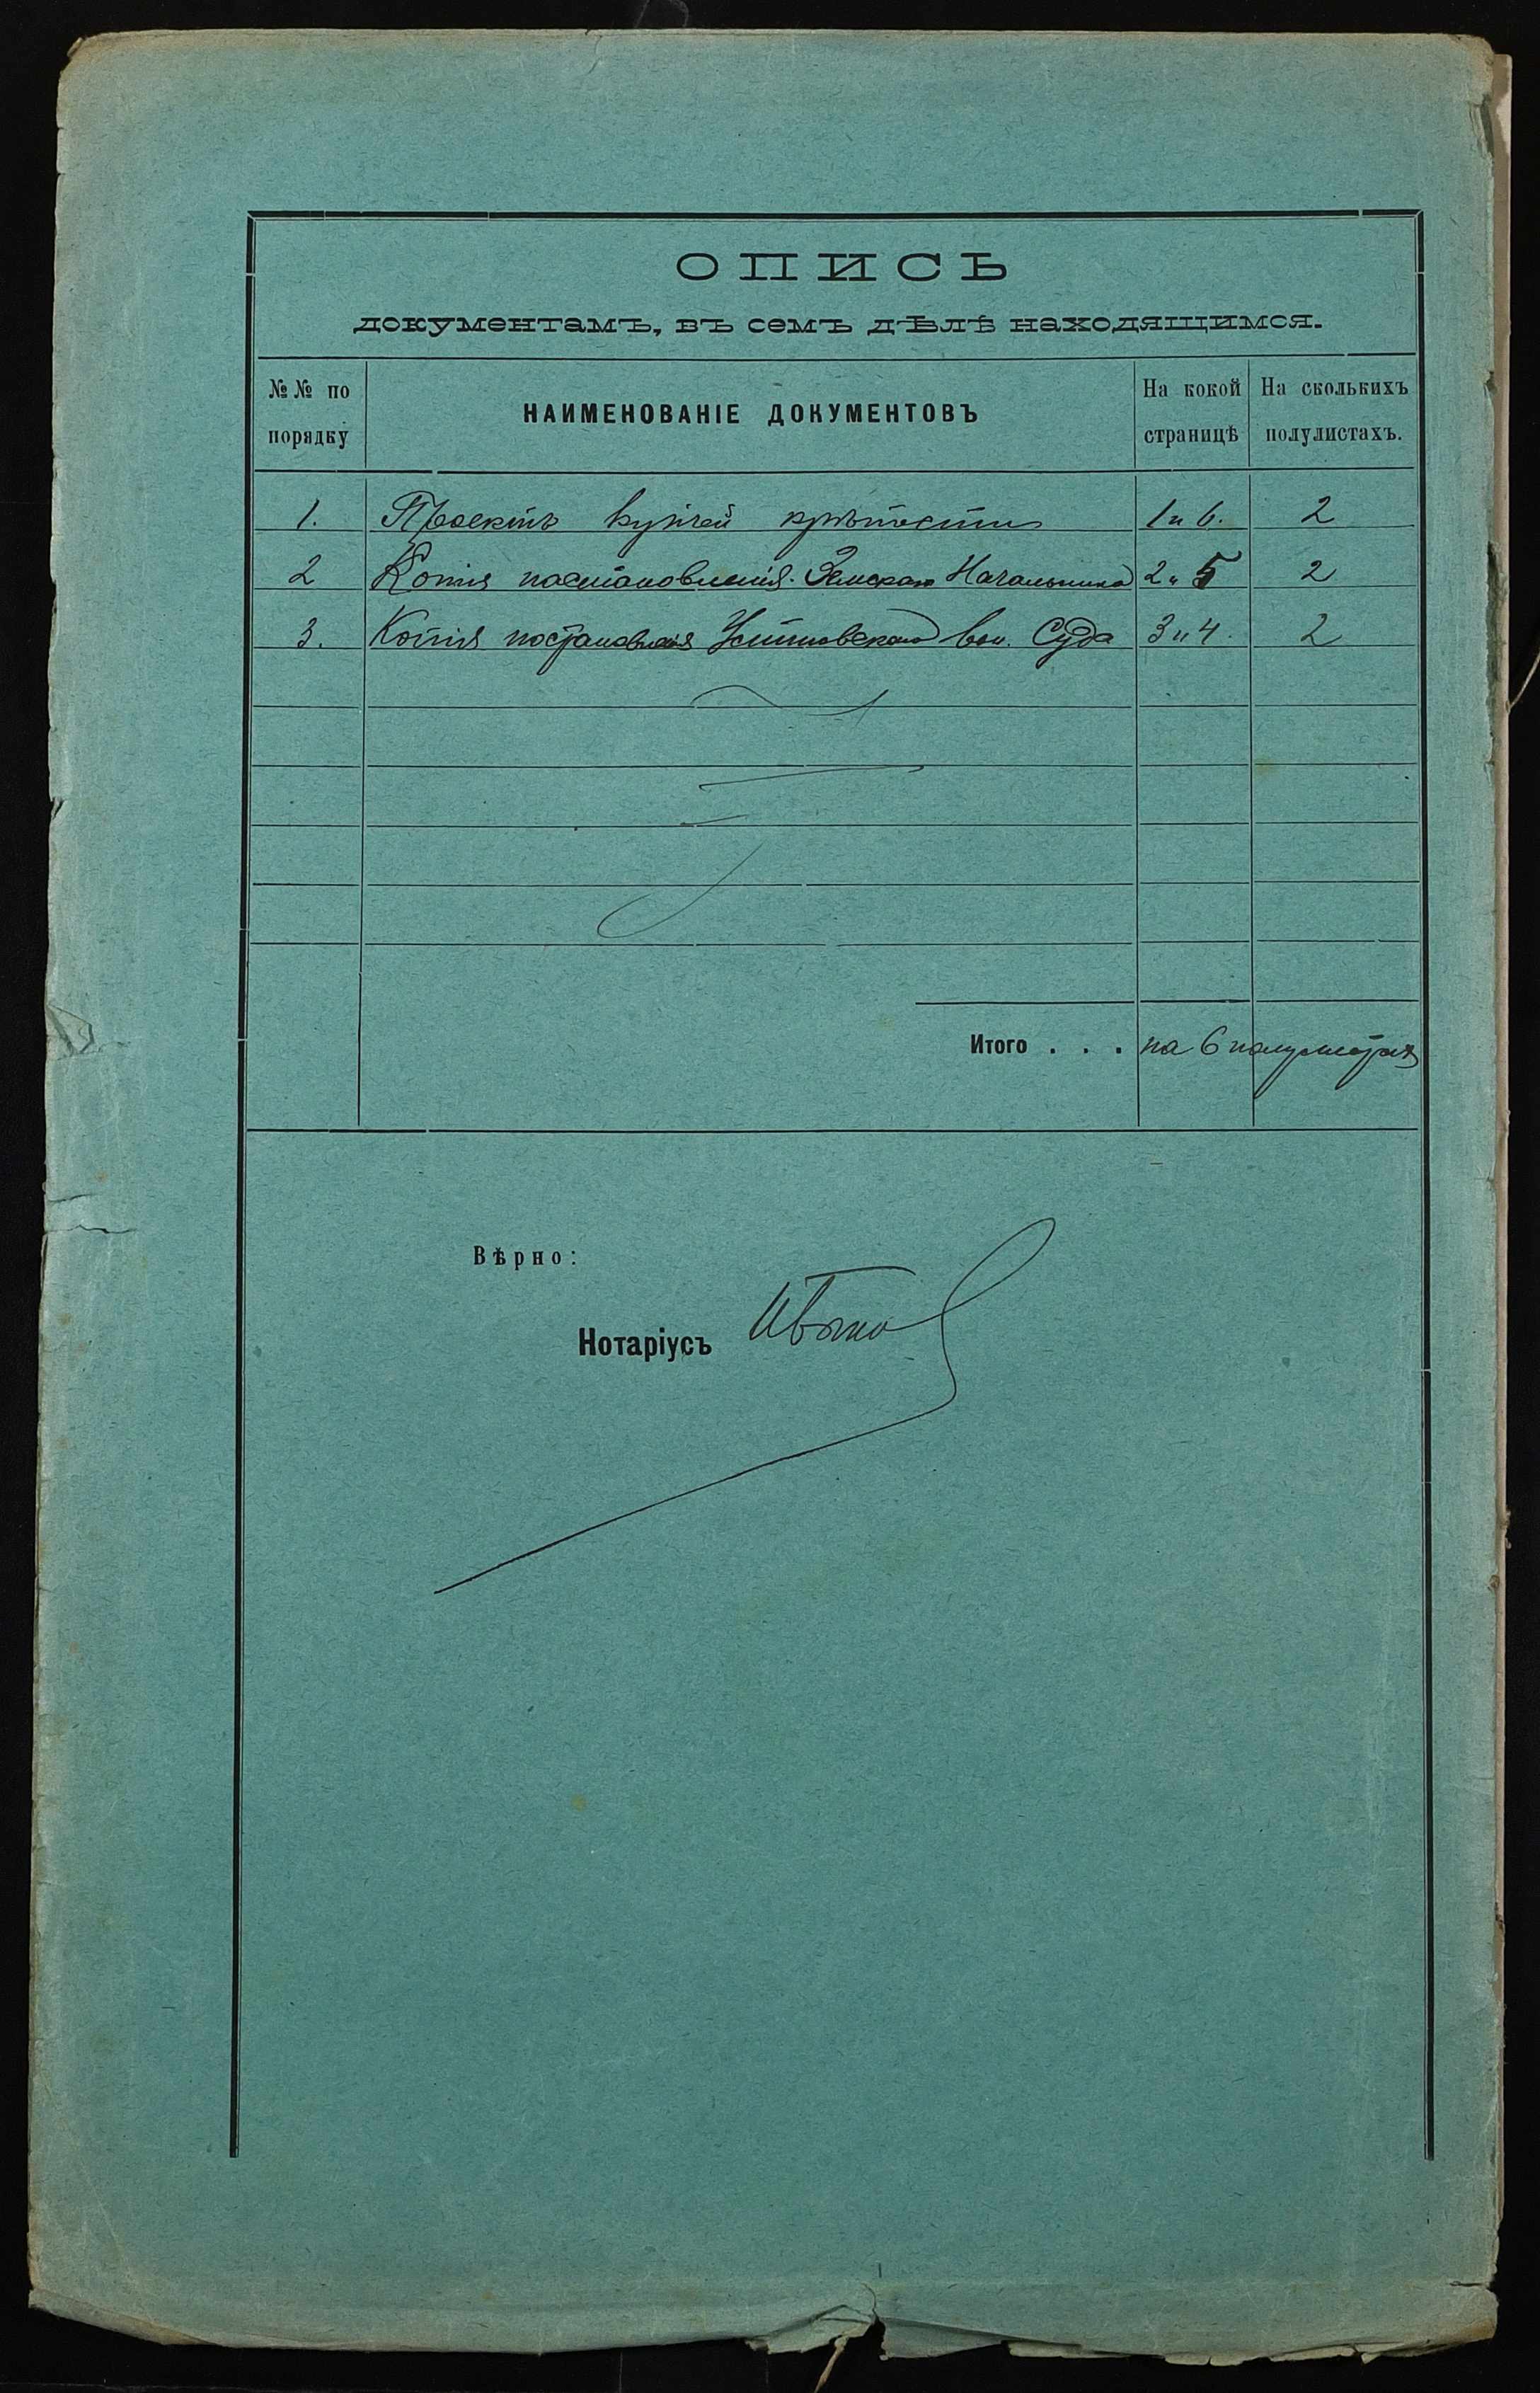 ОПИСЬ
документамъ, въ семъ дѣлѣ находящимся.
№№ по порядку
НАИМЕНОВАНІЕ ДОКУМЕНТОВЪ
На кокой страницѣ
На сколькихъ полулистахъ.
1. Проектъ купчей крѣпости 1 и 6. 2
2 Копія постановленія Земскаго Начальника 2 и 5 2
3. Копія постановленія вол. Суда 3 и 4. 2
Итого . . . на 6 полулистах
Вѣрно:
Нотаріусъ